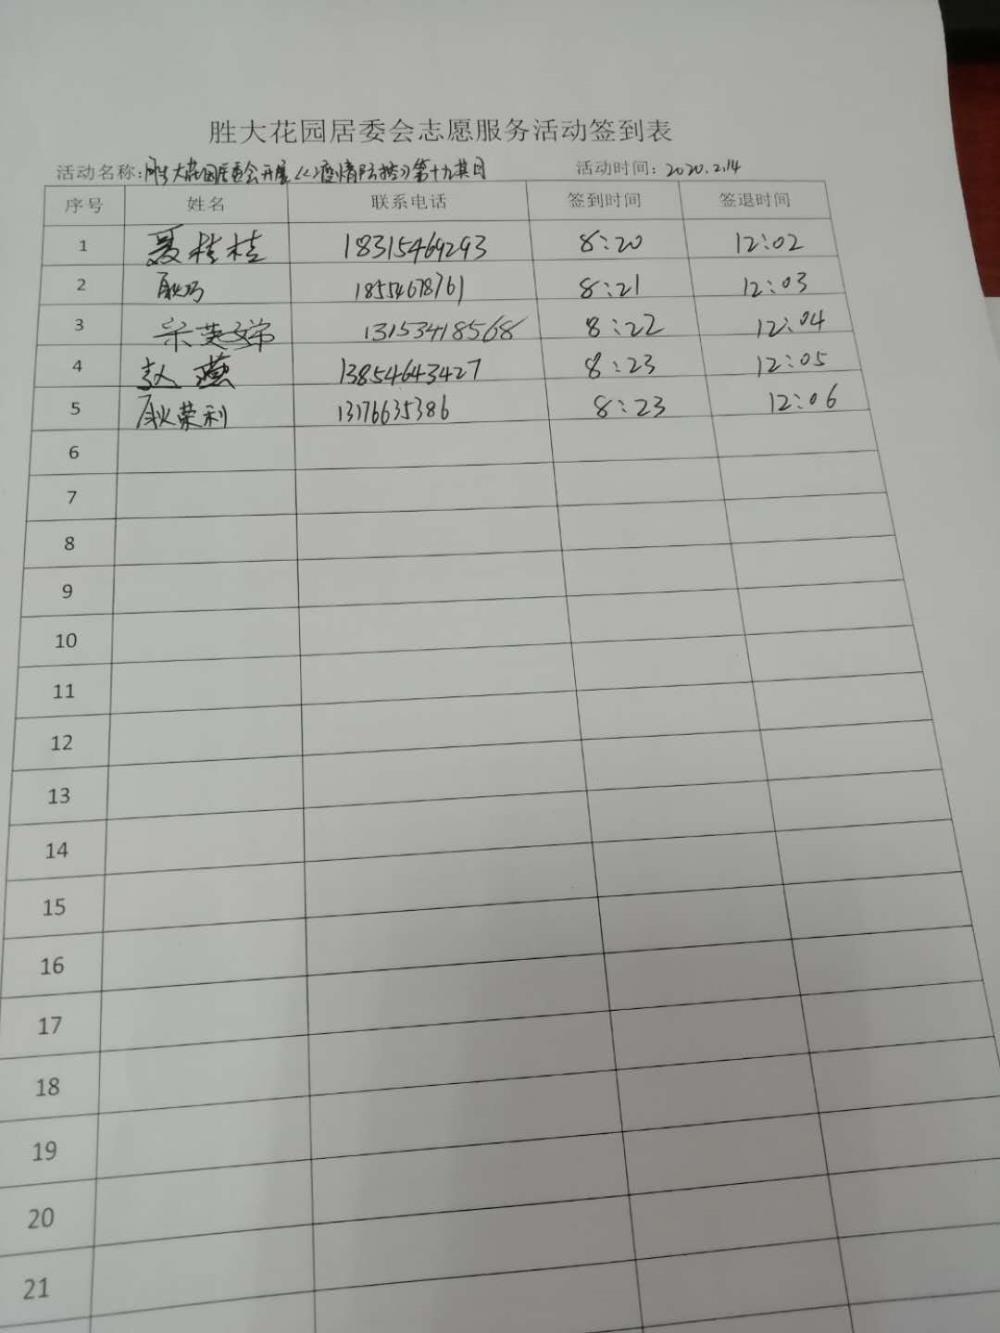 胜大花园居委会志愿服务活动签到表
活动名称:胜大花园居委会开展《疫情防控》第十九期 活动时间: 2020.2.14
序号 姓名 联系电话 签到时间 签退时间
1 聂桂桂 18315469293 8:20 12:02
2 耿巧 18554678761 8:21 12:03
3 13153418568 8:22 12:04
4 赵燕 13854643427 8:23 12:05
5 耿荣利 13176635386 8:23 12:06
6
7
8
9
10
11
12
13
14
15
16
17
18
19
20
21